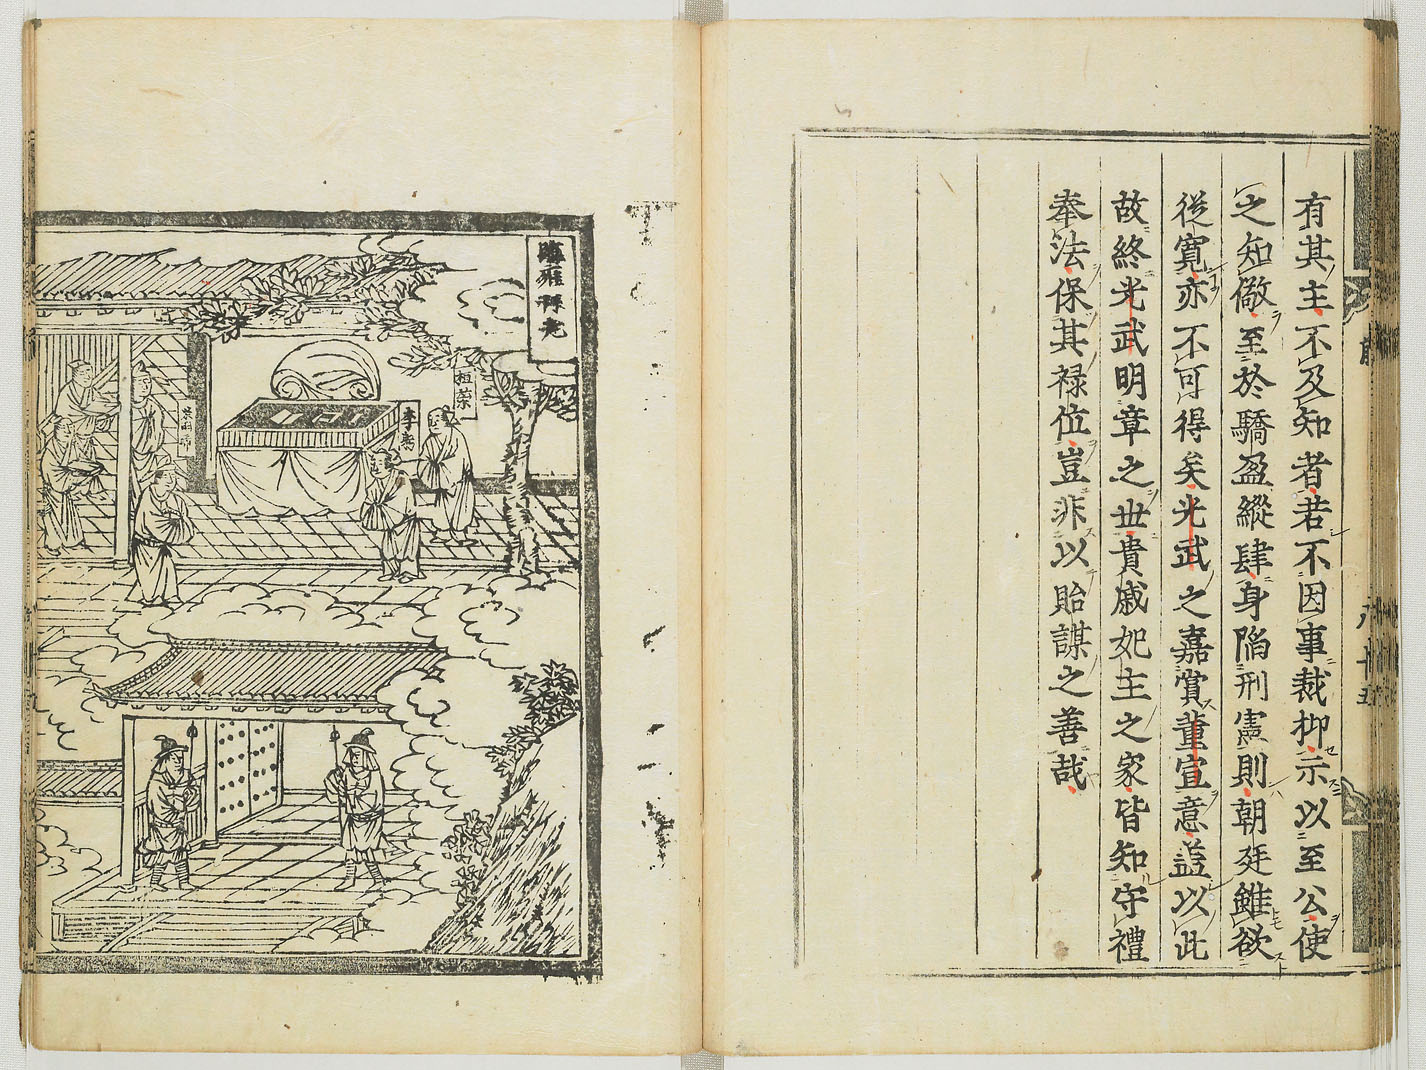 有其主不及知者若不因事裁抑示以至公使
之知儆至於驕盈縱肆身陷刑憲則朝廷雖欲
從寬亦不可得矣光武之嘉賞董宣意蓋以此
故終光武明章之世貴戚妃主之家皆知守禮
奉法保其禄位豈非以貽謀之善哉
臨雍拜老
桓榮
李躬
漢明帝